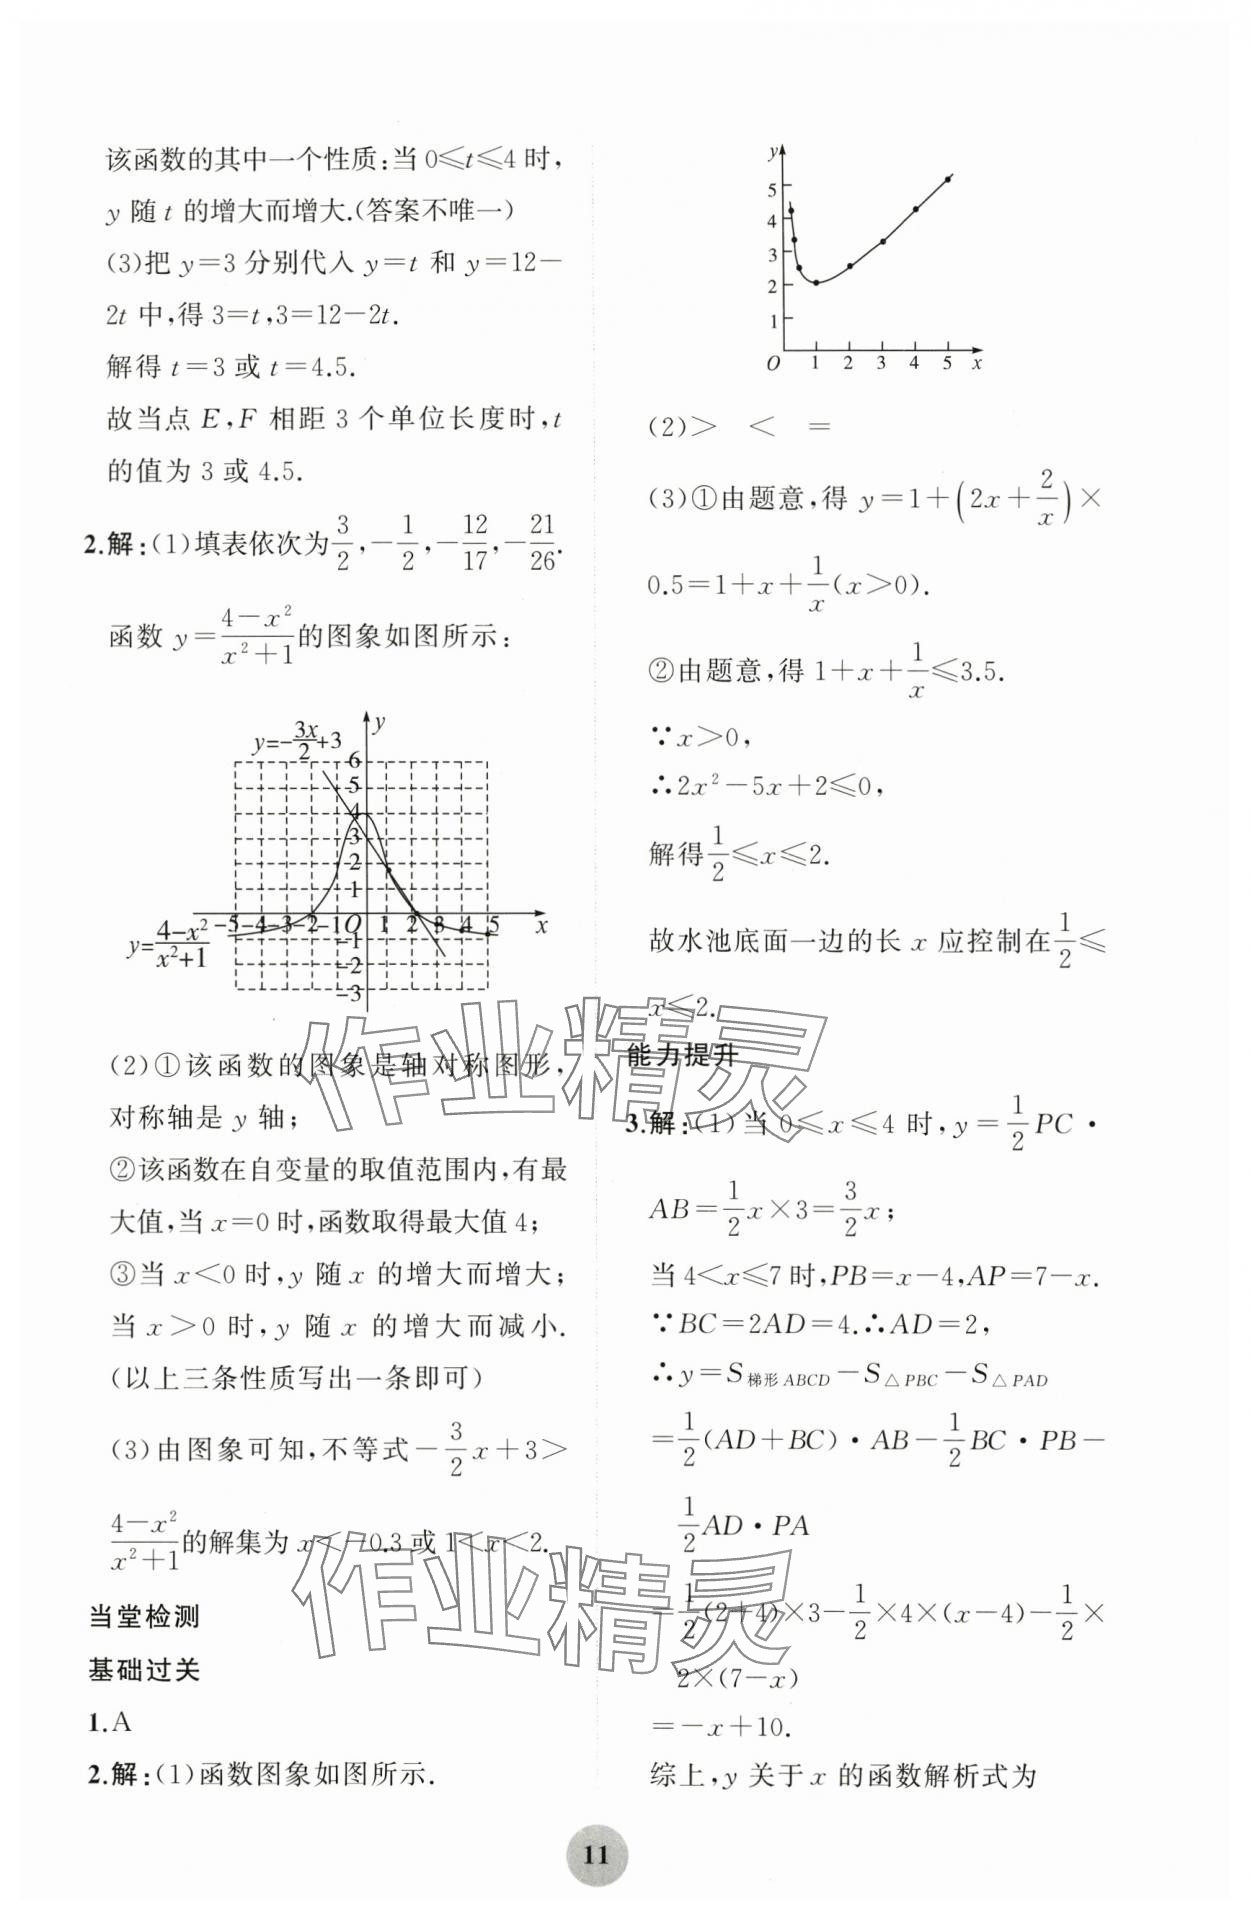 该函数的其中一个性质:当 0≤t≤4 时,
y 随 t 的增大而增大.(答案不唯一)
(3)把 y=3 分别代入 y=t 和 y=12-
2t 中,得 3=t,3=12-2t.
解得 t=3 或 t=4.5.
故当点 E,F 相距 3 个单位长度时,t
的值为 3 或 4.5.
2.解:(1)填表依次为 3/2,-1/2,-12/17,-21/26.
函数 y=(4-x²)/(x²+1) 的图象如图所示:
y=-3x/2+3
y
6
5
4
3
2
1
-5 -4 -3 -2 -1 O 1 2 3 4 5 x
-1
-2
-3
y=(4-x²)/(x²+1)
(2)①该函数的图象是轴对称图形,
对称轴是 y 轴;
②该函数在自变量的取值范围内,有最
大值,当 x=0 时,函数取得最大值 4;
③当 x<0 时,y 随 x 的增大而增大;
当 x>0 时,y 随 x 的增大而减小.
(以上三条性质写出一条即可)
(3)由图象可知,不等式 -3/2 x+3>
(4-x²)/(x²+1) 的解集为 x<-0.3 或 1<x<2.
当堂检测
基础过关
1.A
2.解:(1)函数图象如图所示.
y
5
4
3
2
1
O 1 2 3 4 5 x
(2)> < =
(3)①由题意,得 y=1+(2x+2/x)×
0.5=1+x+1/x(x>0).
②由题意,得 1+x+1/x≤3.5.
∵x>0,
∴2x²-5x+2≤0,
解得 1/2≤x≤2.
故水池底面一边的长 x 应控制在 1/2≤
x≤2.
能力提升
3.解:(1)当 0≤x≤4 时,y=1/2 PC·
AB=1/2 x×3=3/2 x;
当 4<x≤7 时,PB=x-4,AP=7-x.
∵BC=2AD=4.∴AD=2,
∴y=S梯形ABCD-S△PBC-S△PAD
=1/2(AD+BC)·AB-1/2 BC·PB-
1/2 AD·PA
=1/2(2+4)×3-1/2×4×(x-4)-1/2×
2×(7-x)
=-x+10.
综上,y 关于 x 的函数解析式为
11
作业精灵
作业精灵